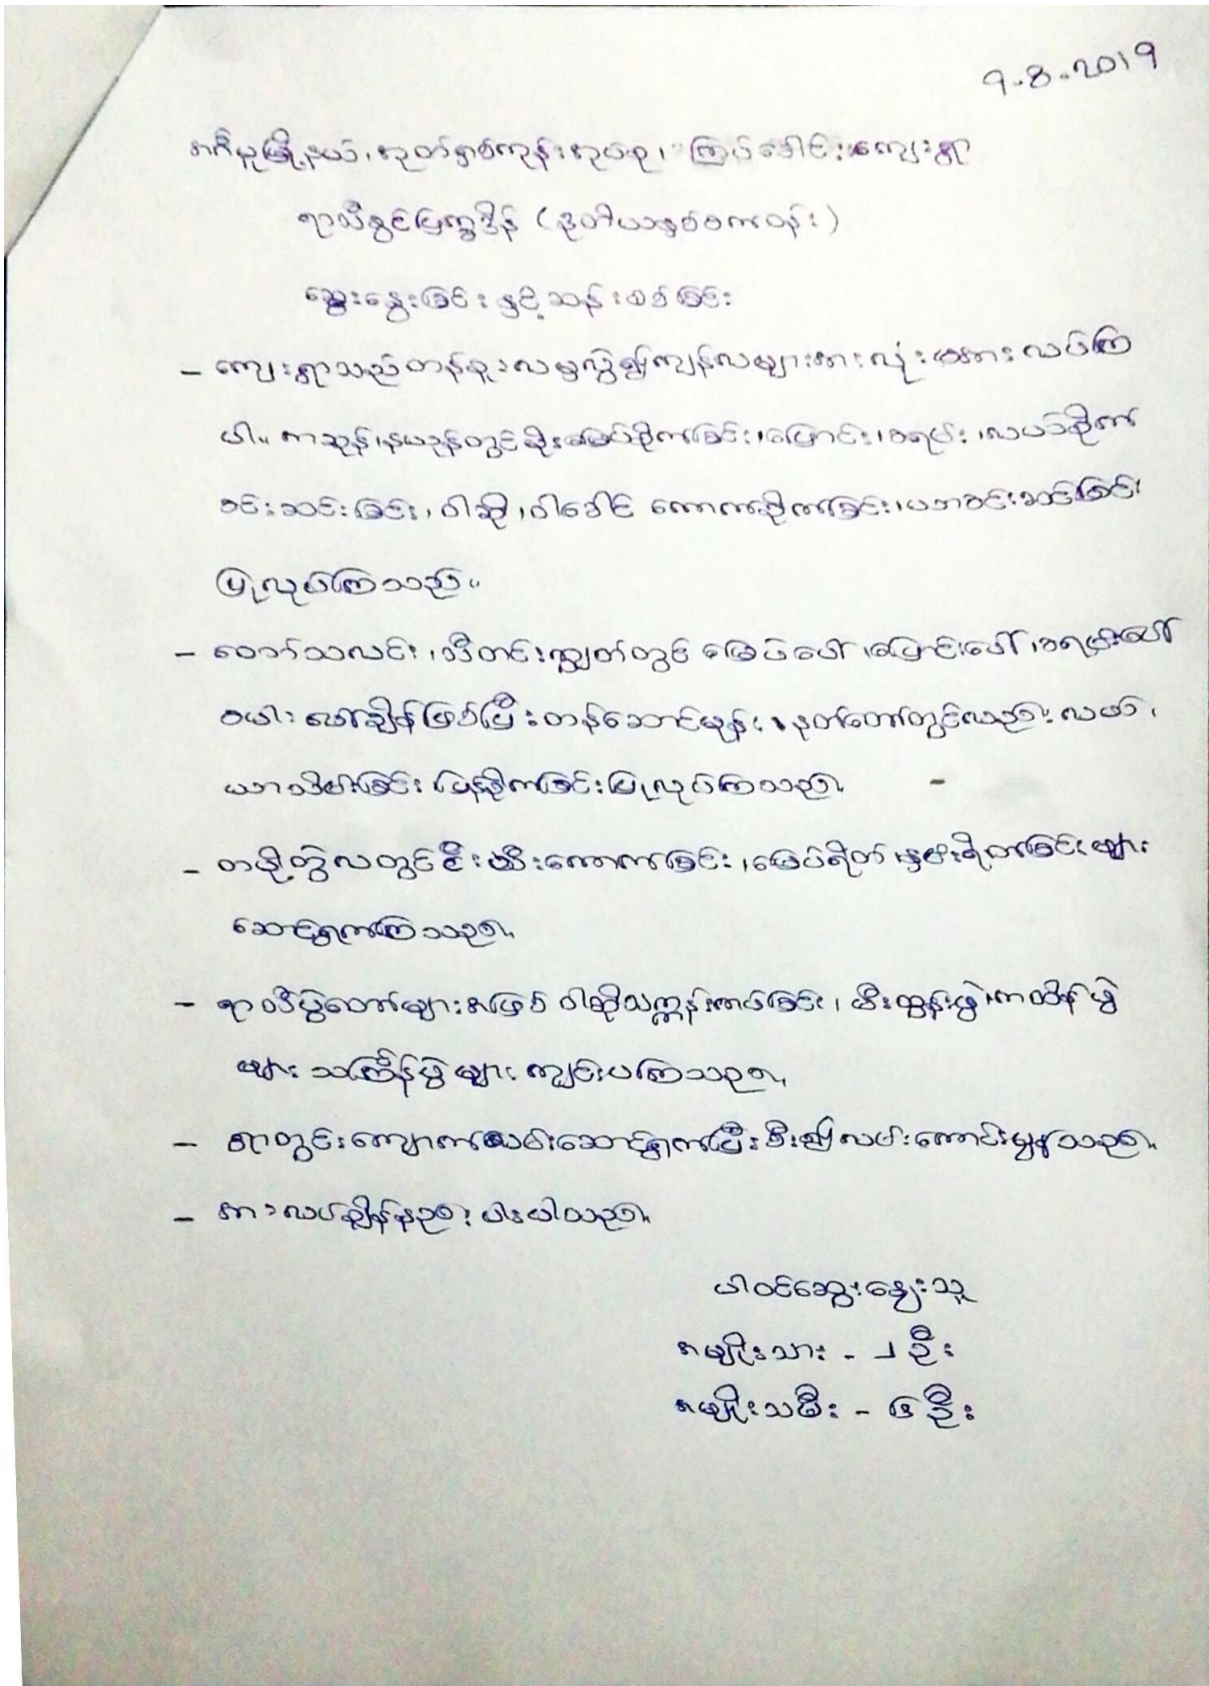 9-8-2019
အင်္ဂပူမြို့နယ်၊ အုတ်ရှစ်ကုန်းအုပ်စု၊ ကြပ်ခေါင်းကျေးရွာ
ရာသီခွင်ပြက္ခဒိန် (ဒုတိယနှစ်စကတန်း)
ဆွေးနွေးခြင်းနှင့်ဆန်းစစ်ခြင်း
– ကျေးရွာသည်တန်ခူးလမှလွဲ၍ကျန်လများအားလုံးမအားလပ်ကြ
ပါ။ ကဆုန်၊နယုန်တွင်မိုးမြေပဲစိုက်ခြင်း၊ပြောင်း၊ခရမ်း၊လယ်စိုက်
ခင်းဆင်းခြင်း၊ ဝါဆို၊ဝါခေါင် ကောက်စိုက်ခြင်း၊ပဲဘခင်းဆင်းခြင်း
ပြုလုပ်ကြသည်။
– တော်သလင်း၊သီတင်းကျွတ်တွင် မြေပဲပေါ်၊ပြောင်းပေါ်၊ခရမ်းပေါ်
စပါးပေါ်ချိန်ဖြစ်ပြီးတန်ဆောင်မုန်း၊နတ်တော်တွင်လည်းလယ်၊
ယာသိမ်းခြင်း ပြန်စိုက်ခြင်းပြုလုပ်ကြသည်။
– တပို့တွဲလတွင်နှီးသီးကောက်ခြင်း၊မြေပဲရိတ်၊နှမ်းရိတ်ခြင်းများ
ဆောင်ရွက်ကြသည်။
– ရာသီပွဲတော်များအဖြစ် ဝါဆိုသင်္ကန်းကပ်ခြင်း၊ မီးထွန်းပွဲ၊ကထိန်ပွဲ
များ သင်္ကြန်ပွဲများ ကျင်းပကြသည်။
– ရွာတွင်းကျောက်လမ်းဆောင်ရွက်ပြီးစီး၍လမ်းကောင်းမွန်သည်။
– အားလပ်ချိန်နည်းပါးပါသည်။
ပါဝင်ဆွေးနွေးသူ
အမျိုးသား - ၂ဦး
အမျိုးသမီး - ၆ဦး